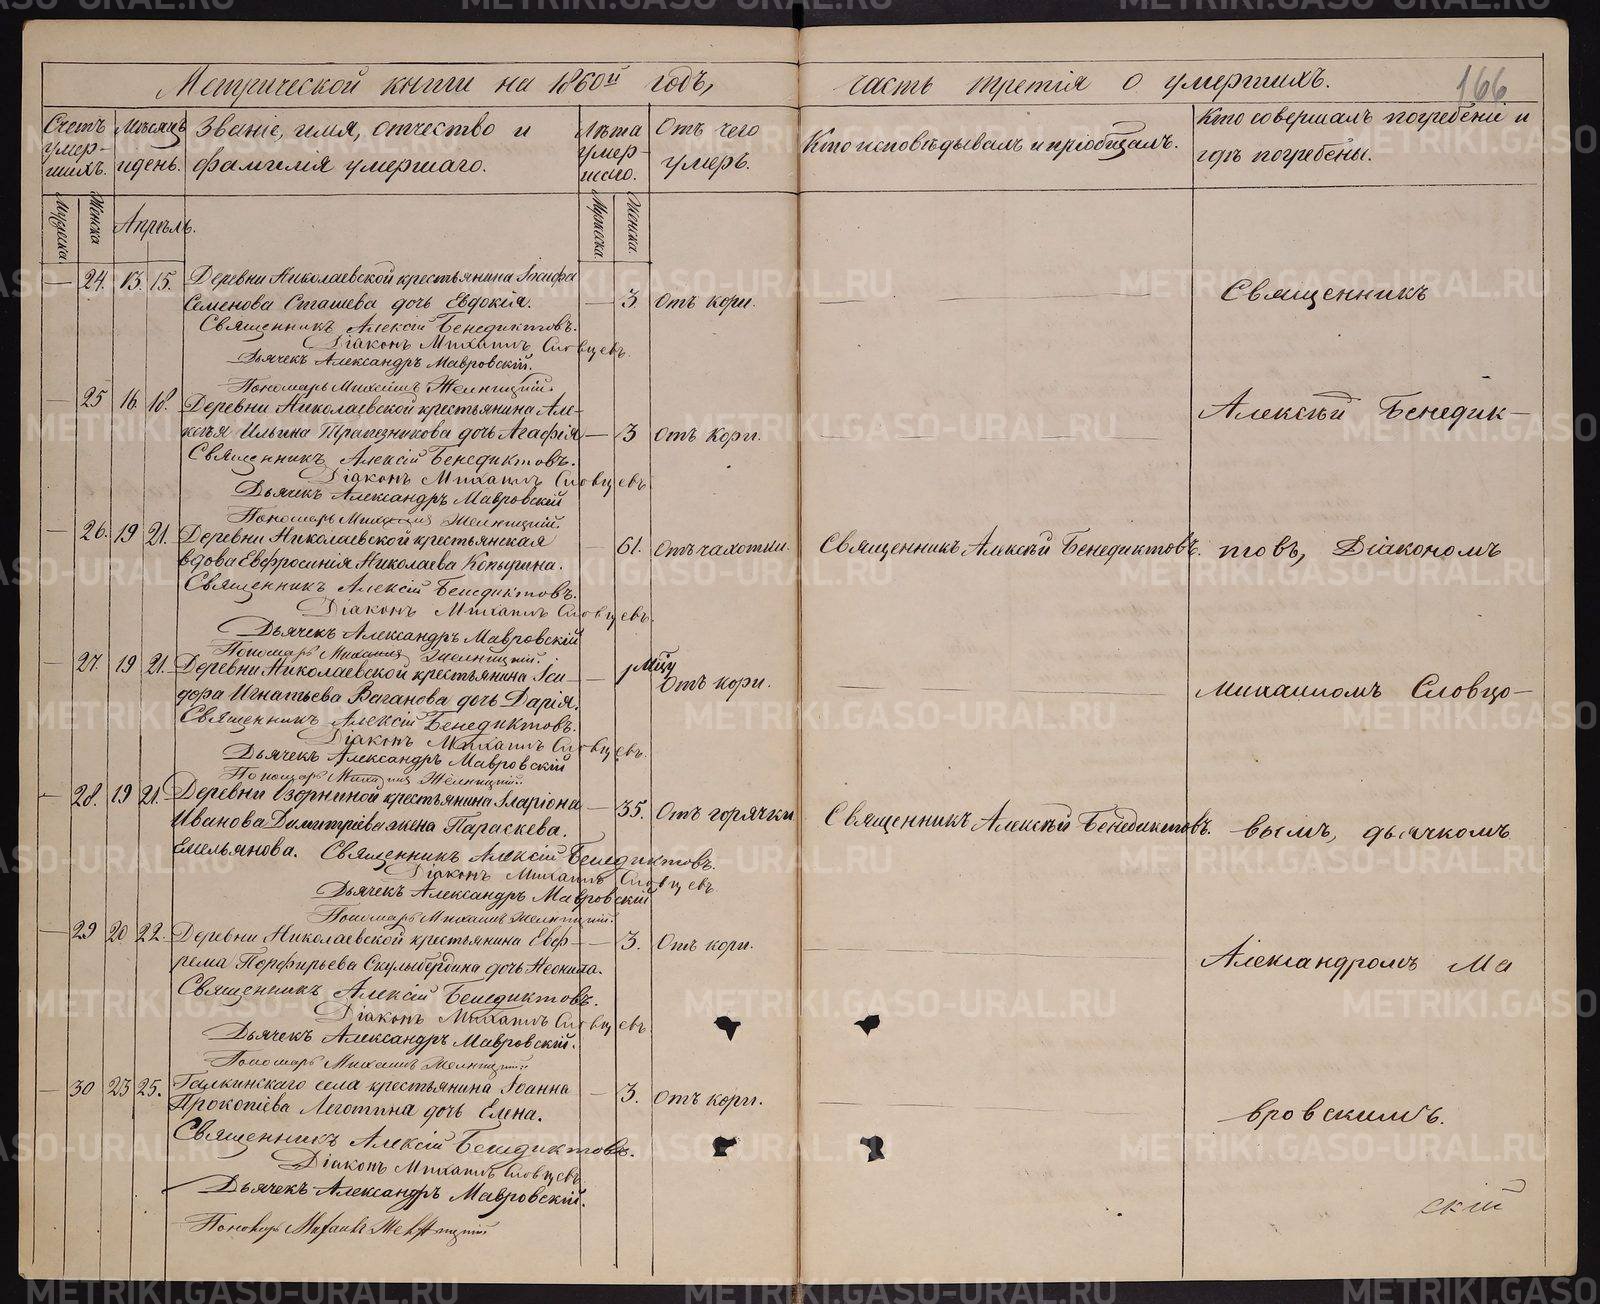 Метрической книги на 1860й годъ,
часть третія о умершихъ.
166
Счетъ умер-шихъ.
Мѣсяцъ и день.
Званіе, имя, отчество и
фамилія умершаго.
Лѣта умер-шаго.
Отъ чего
умеръ.
Кто исповѣдывалъ и пріобщалъ.
Кто совершалъ погребеніе и
гдѣ погребены.
Мужеска
Женска
Апрѣль.
Мужеска
Женска
— 24. 13. 15. Деревни Николаевской крестьянина
Семенова Сташева дочь Евдокія. — 3 Отъ кори.
Священникъ Алексій Бенедиктовъ.
Діаконъ Михаилъ Словцевъ.
Дьячекъ Александръ Мавровскій.
Пономарь Михаилъ
— 25 16. 18. Деревни Николаевской крестьянина Але-
ксѣя Ильина Трапезникова дочь Агафія — 3 Отъ кори.
Священникъ Алексій Бенедиктовъ.
Діаконъ Михаилъ Словцевъ
Дьячекъ Александръ Мавровскій
Пономарь Михаилъ
— 26. 19 21. Деревни Николаевской крестьянская
вдова Евфросинія Николаева Копырина. — 61. Отъ чахотки. Священникъ Алексѣй Бенедиктовъ.
Священникъ Алексій Бенедиктовъ.
Діаконъ Михаилъ Словцевъ.
Дьячекъ Александръ Мавровскій
Пономарь Михаилъ
— 27. 19 21. Деревни Николаевской крестьянина Іси-
дора Игнатьева Ваганова дочь Дарія. — Отъ кори.
Священникъ Алексій Бенедиктовъ.
Діаконъ Михаилъ Словцевъ.
Дьячекъ Александръ Мавровскій
Пономарь Михаилъ
— 28. 19 21. Деревни крестьянина Иларіона
Иванова Димитріева жена Параскева. — 35. Отъ горячки Священникъ Алексѣй Бенедиктовъ.
Емельянова. Священникъ Алексій Бенедиктовъ.
Діаконъ Михаилъ Словцевъ
Дьячекъ Александръ Мавровскій
Пономарь Михаилъ
— 29 20 22. Деревни Николаевской крестьянина Евф-
рема Порфирьева дочь Неонила. — 3. Отъ кори.
Священникъ Алексій Бенедиктовъ.
Діаконъ Михаилъ Словцевъ.
Дьячекъ Александръ Мавровскій.
Пономарь Михаилъ
— 30 23 25. Галкинскаго села крестьянина Іоанна
Прокопіева Леготина дочь Елена. — 3. Отъ кори.
Священникъ Алексій Бенедиктовъ.
Діаконъ Михаилъ Словцевъ
Дьячекъ Александръ Мавровскій.
Пономарь
Священникъ
Алексѣй Бенедик-
товъ, Діакономъ
Михаиломъ Словцо-
вымъ, дьячкомъ
Александромъ Ма
вровскимъ.
скій
METRIKI.GASO-URAL.RU